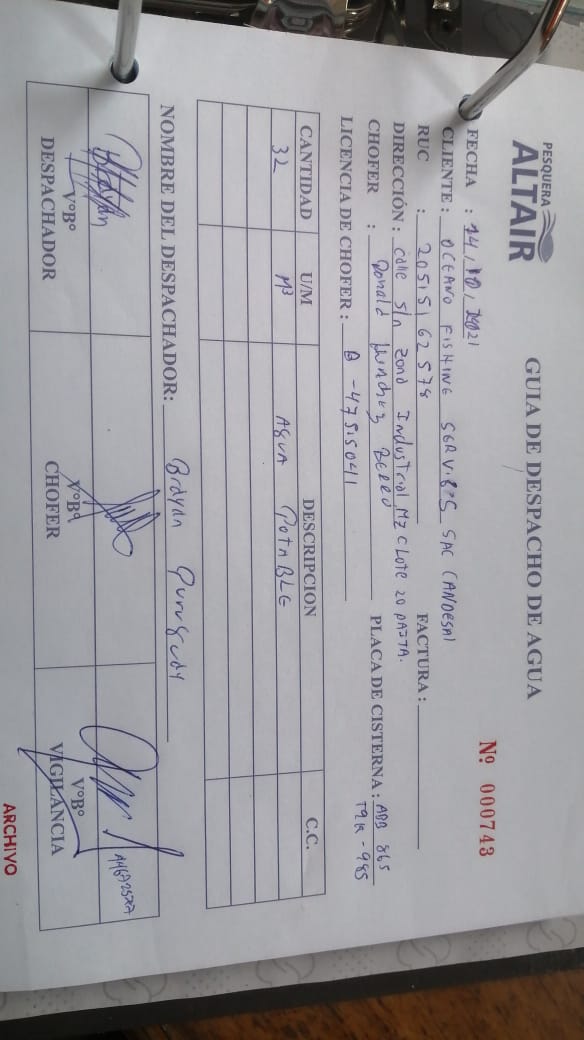 PESQUERA
ALTAIR
GUIA DE DESPACHO DE AGUA
Nº 000743
FECHA : 14, 10, 2021
CLIENTE : OCEANO FISHING SAC CANDESAI
RUC : 20515162578 FACTURA :
DIRECCIÓN : calle s/n zona Industrial Mz C Lote 20 PAITA.
CHOFER : Donald PLACA DE CISTERNA : ABB 865
T9K - 985
LICENCIA DE CHOFER : B - 47515041
CANTIDAD U/M DESCRIPCION C.C.
32 M³ AGUA POTABLE
NOMBRE DEL DESPACHADOR: Brayan
VºBº DESPACHADOR
VºBº CHOFER
VºBº VIGILANCIA
ARCHIVO